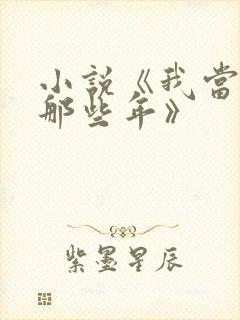 小說《我當
那些年》
紫墨星辰